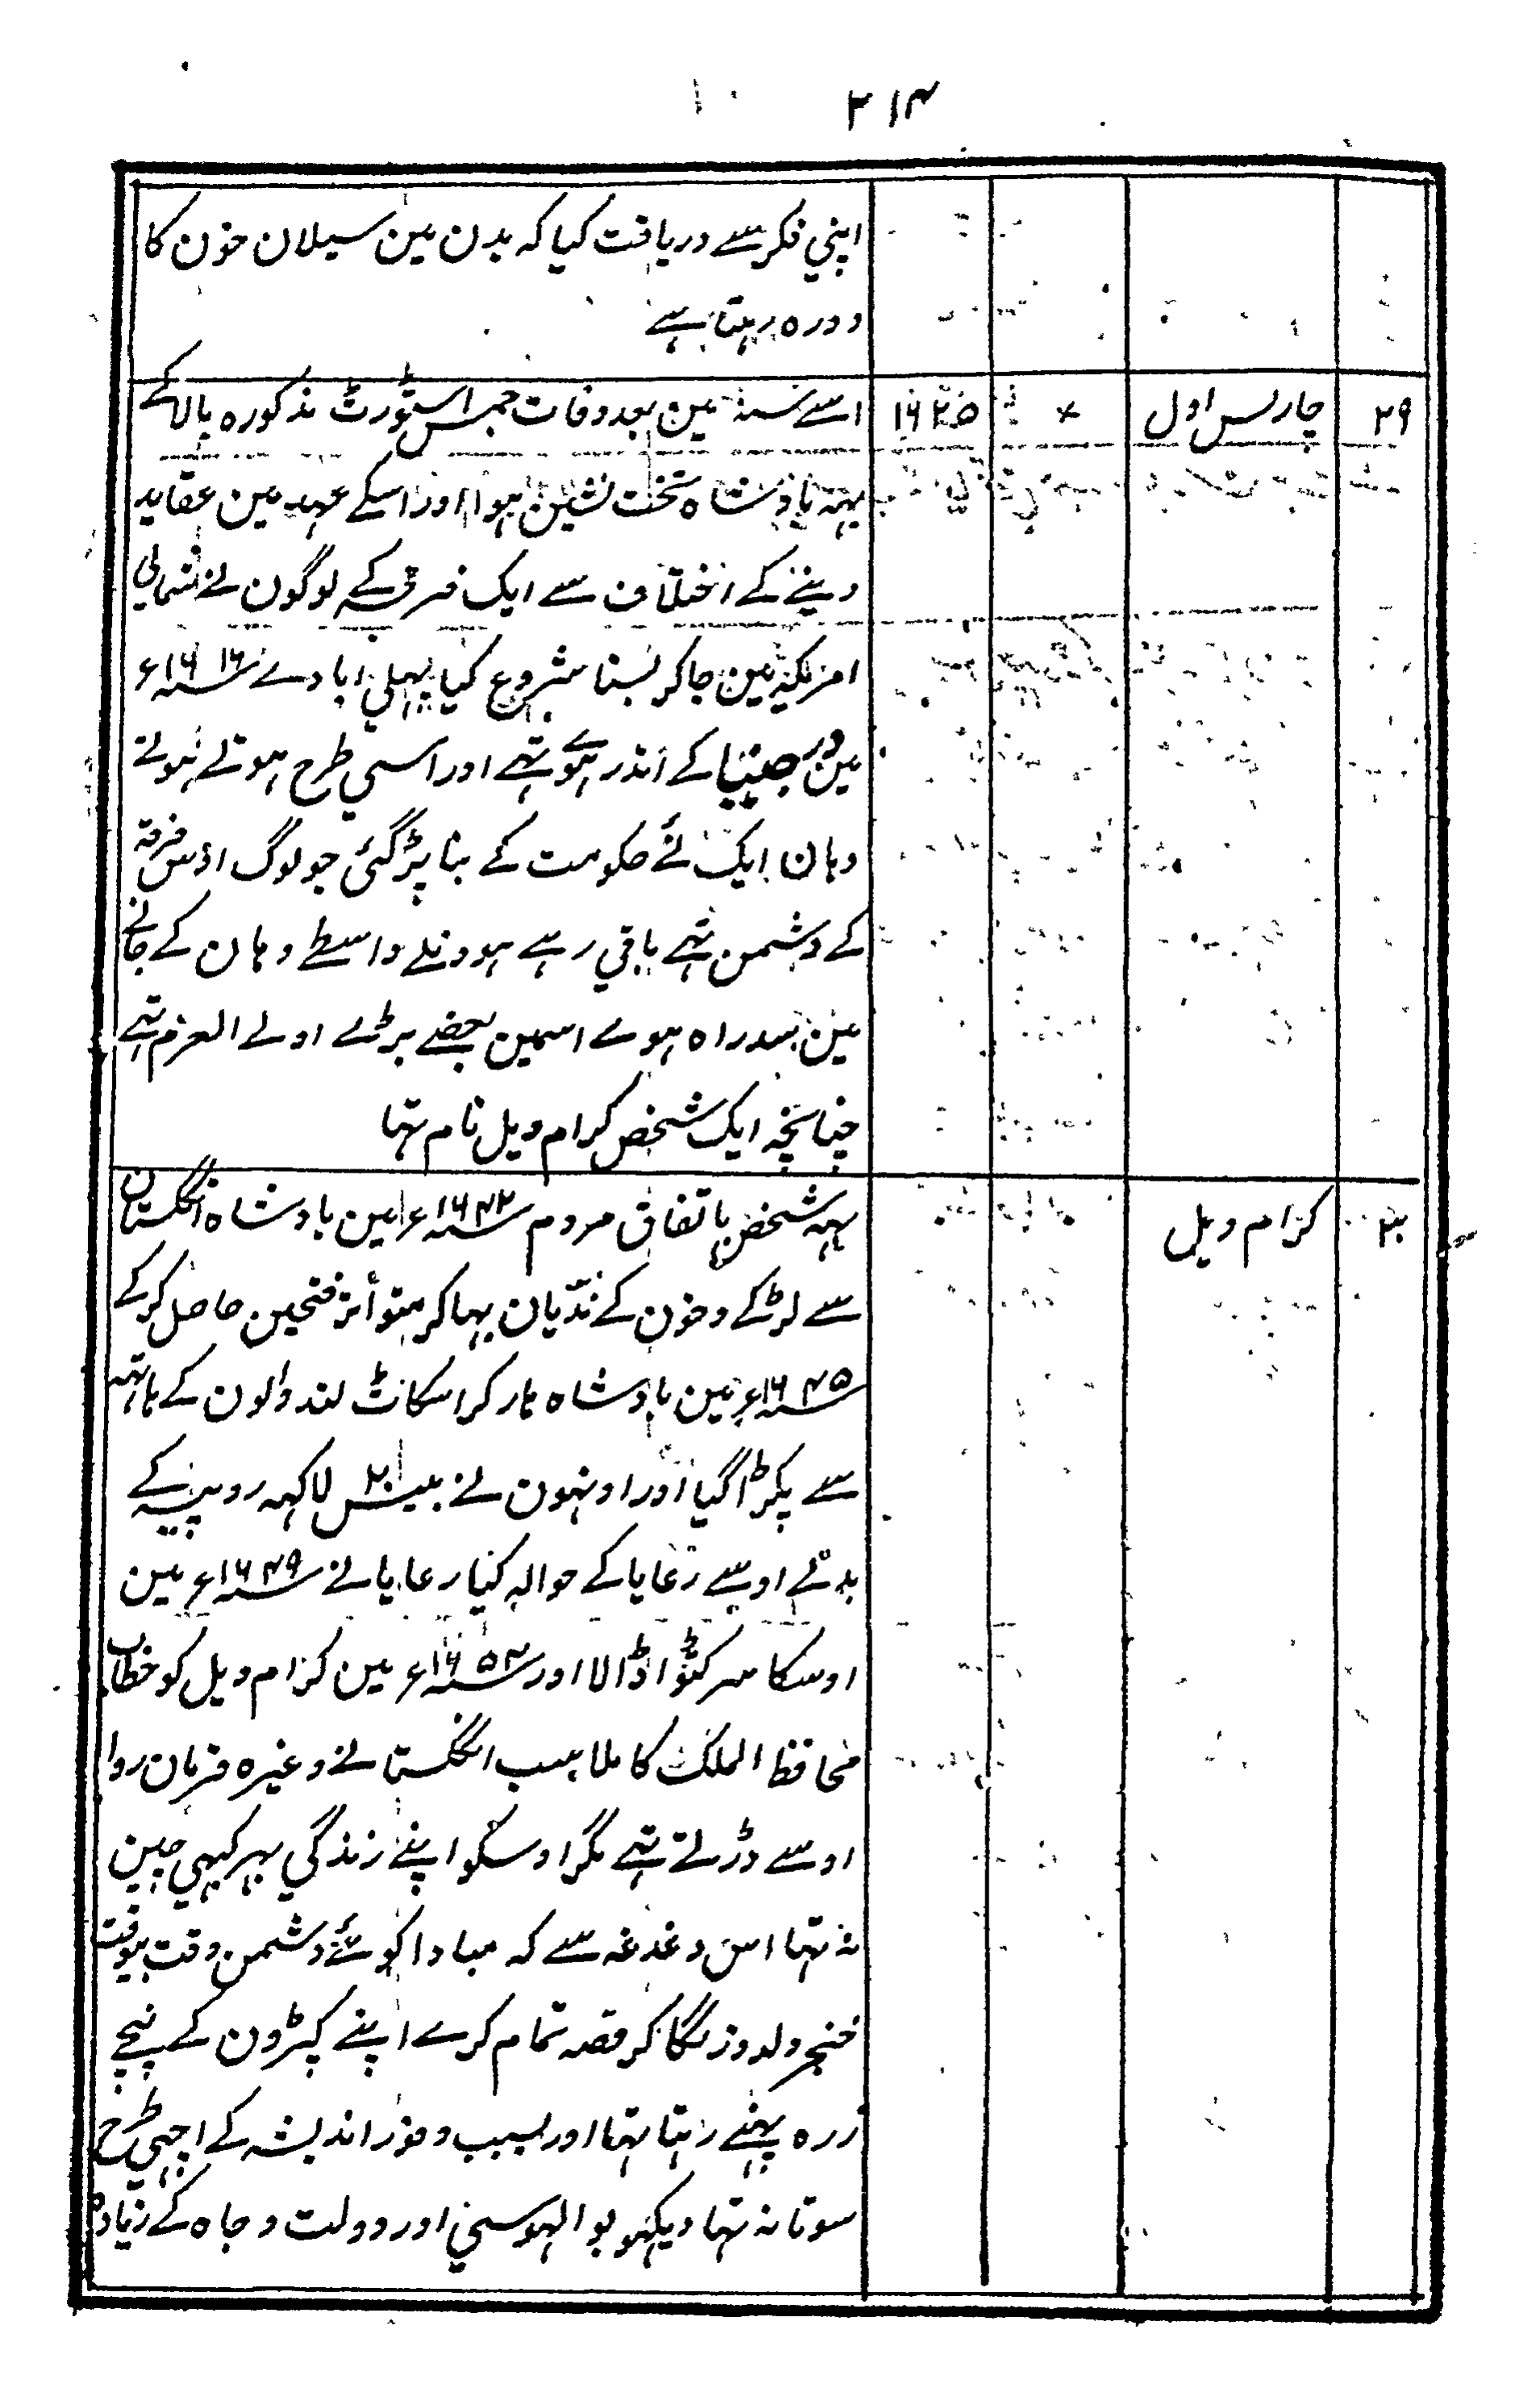 ۲۱۴
اپني فکر سے دریافت کیا کہ بدن مین سیلان خون کا
دورہ رہتا ہے
۲۹ چارلس اول × ۱۶۲۵ اسے سنہ مین بعد وفات جمس اسٹورٹ مذکورہ بالا کے
یہہ بادشاہ تخت نشین ہوا اور اسکے عہد مین عقاید
دینے کے اختلاف سے ایک فرقہ کے لوگون نے شمالی
امریکہ مین جاکر بسنا شروع کیا پہلي ابادے سنہ ۱۶۱۶ء
مین ورجینیا کے اندر ہوئے تہے اور اسي طرح ہوتے ہوتے
وہان ایک نئے حکومت کے بنا پڑ گئی جو لوگ اوس فرقہ
کے دشمن تہے باقي رہے ہوونکے واسطے وہان کے جانے
مین سدراہ ہوے اسمین بعضے بڑے اولے العزم تہے
چنانچہ ایک شخص کرام ویل نام تہا
۳۰ کرام ویل یہہ شخص باتفاق مردم سنہ ۱۶۴۲ء مین بادشاہ انگلستان
سے لڑکے و خون کے ندّیان بہا کر متواتر فتحین حاصل کرکے
سنہ ۱۶۴۵ء مین بادشاہ ہار کر اسکاٹ لند والون کے ہاتہہ
سے پکڑا گیا اور اونہون نے بیس ۲۰ لاکہہ روپیہ کے
بدلے اوسے رعایا کے حوالہ کیا رعایا نے سنہ ۱۶۴۹ء مین
اوسکا سر کٹوا ڈالا اور سنہ ۱۶۵۴ء مین کرام ویل کو خطاب
محافظ الملک کا ملا سب انگلستانے وغیرہ فرمان روا
اوسے ڈرتے تہے مگر اوسکو اپنے زندگي بہر کبہي چین
نہ تہا اس دغدغہ سے کہ مبادا کوئے دشمن وقت بیوقت
خنجر ولدوز لگا کر قصہ تمام کرے اپنے کپڑون کے نیچے
زرہ پہنے رہتا تہا اور بسبب وفور اندیشہ کے اچہي طرح
سوتا نہ تہا دیکہو بوالہوسي اور دولت و جاہ کے زیادہ